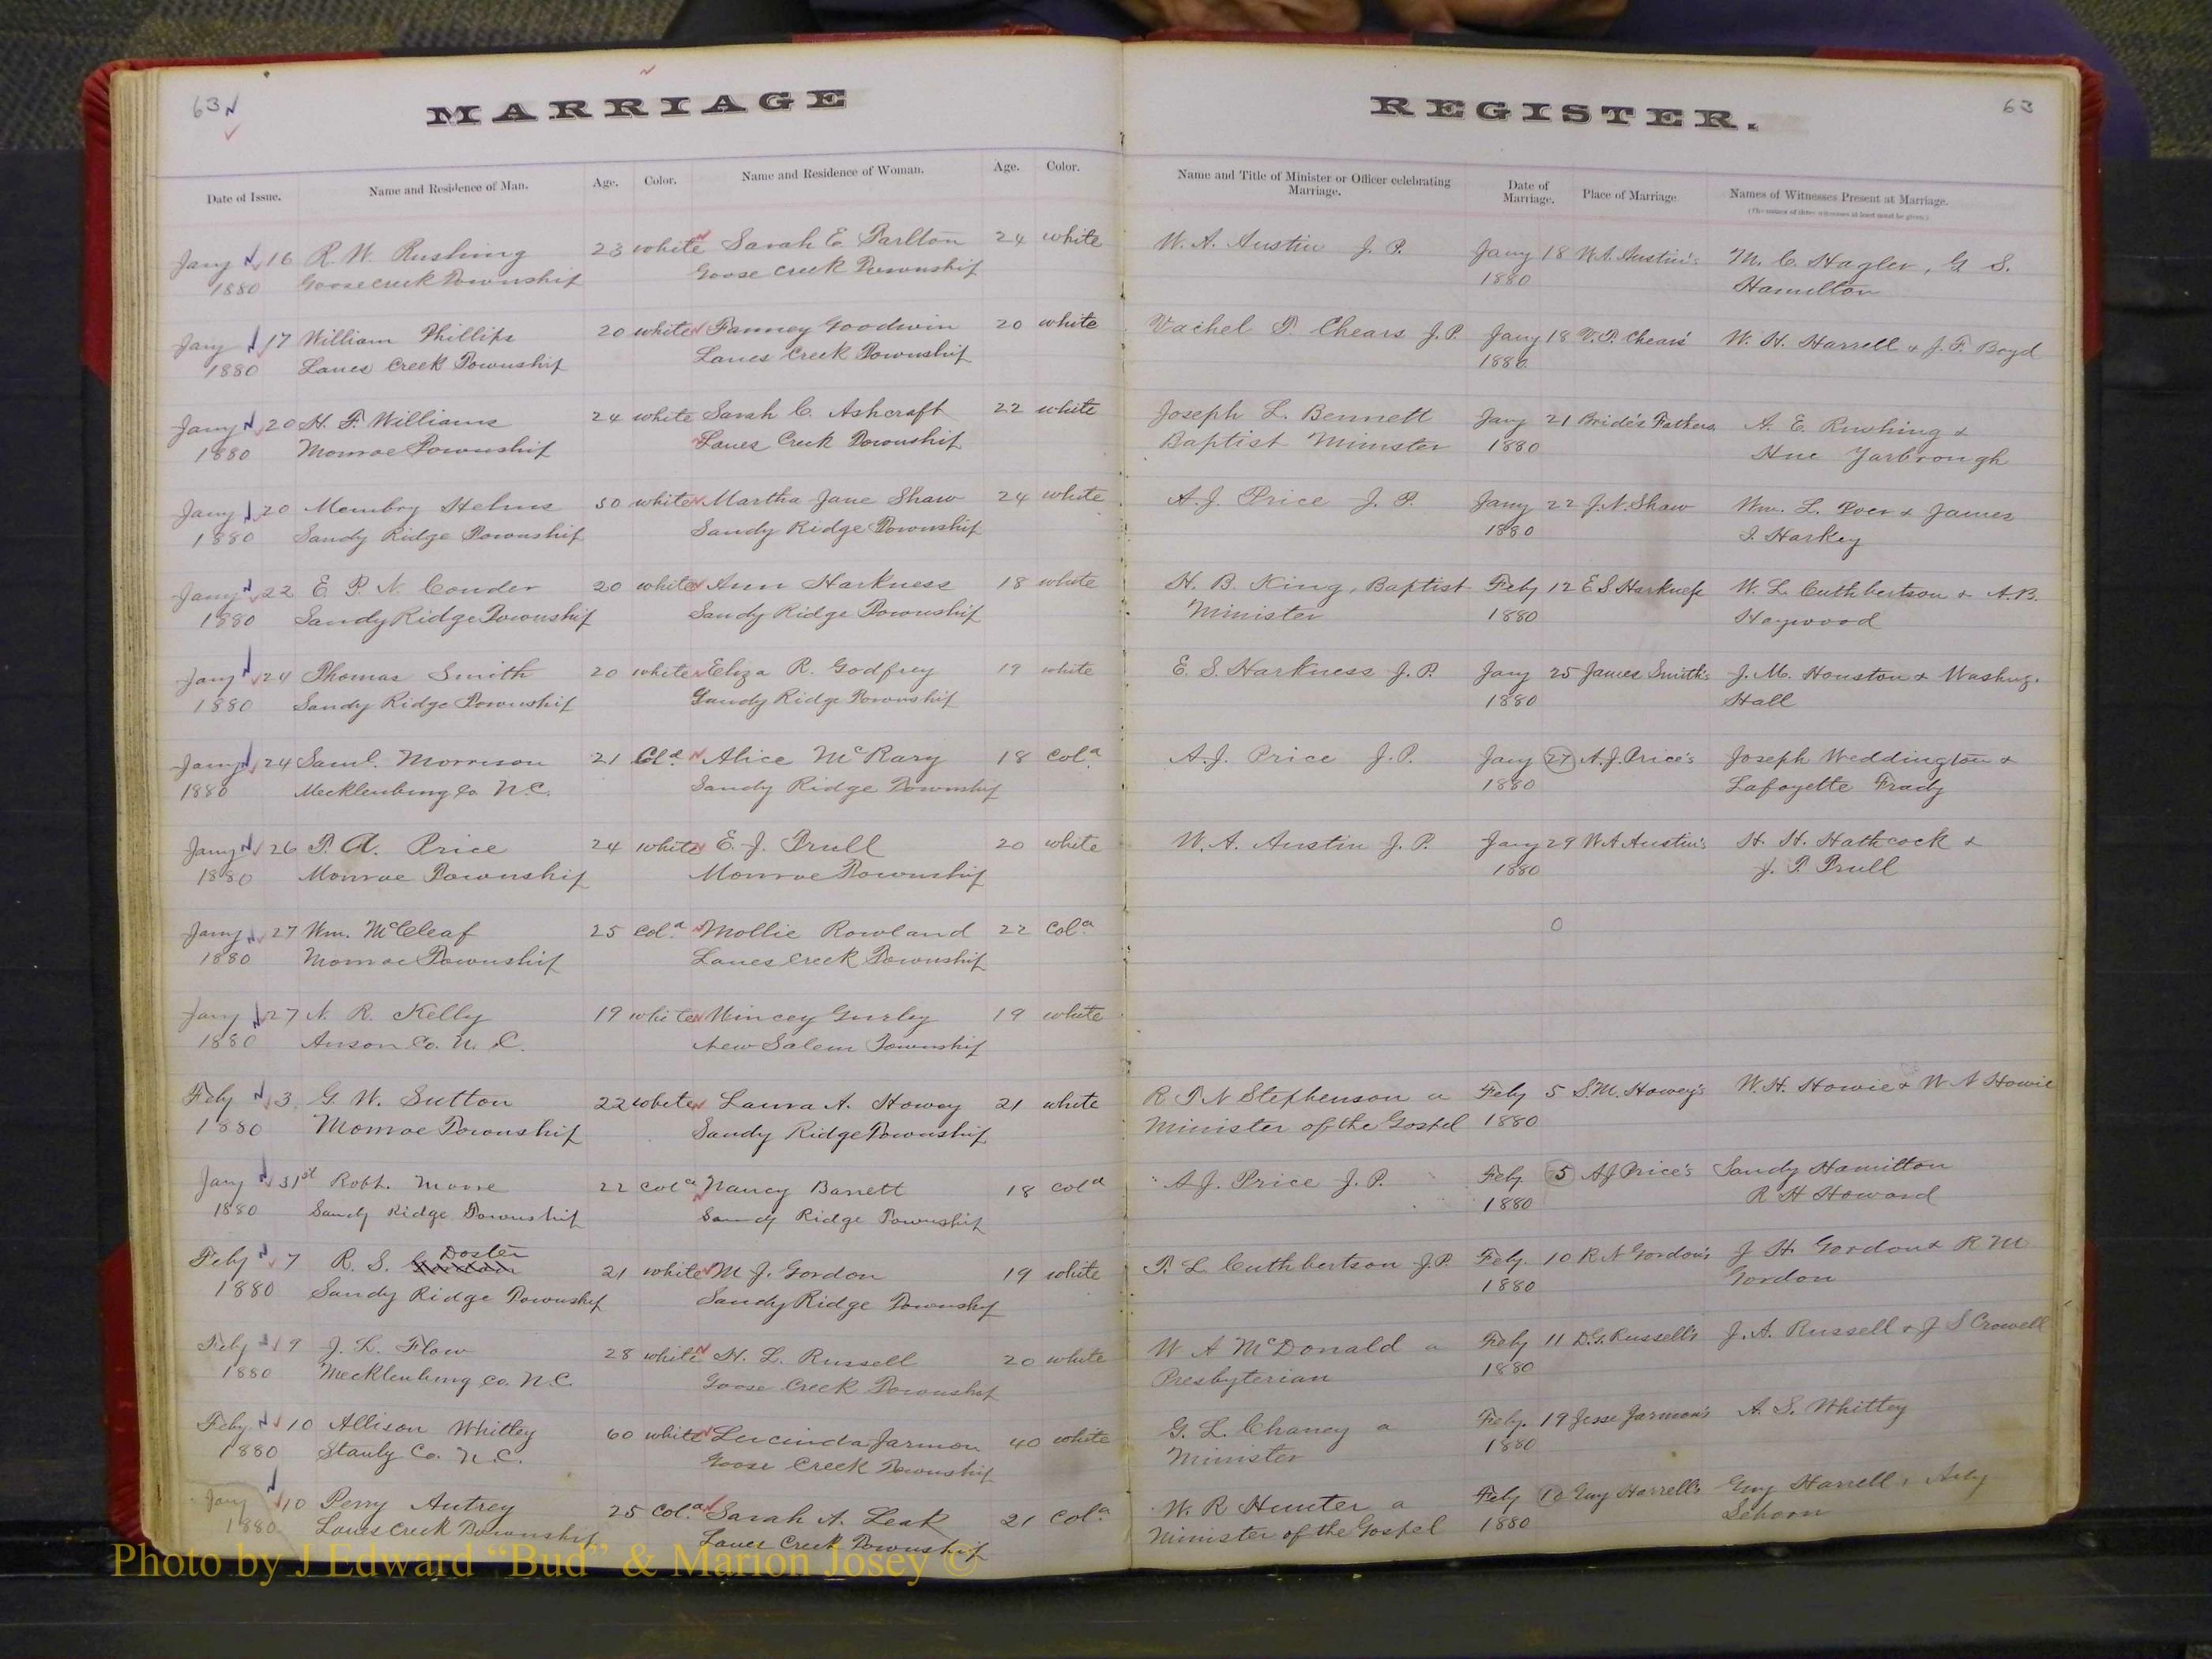 63
MARRIAGE
REGISTER.
63
Date of Issue. Name and Residence of Man. Age. Color. Name and Residence of Woman. Age. Color. Name and Title of Minister or Officer celebrating Marriage. Date of Marriage. Place of Marriage Names of Witnesses Present at Marriage.
(The names of three witnesses at least must be given.)
Jany 16 R. W. Rushing 23 white Sarah E. Tarlton 24 white W. A. Austin J. P. Jany 18 W. A. Austin's M. C. Hagler, G. S.
1880 Goose creek Township Goose Creek Township 1880 Hamilton
Jany 17 William Phillips 20 white Fanney Goodwin 20 white Vachel T. Chears J. P. Jany 18 V. T. Chears' W. H. Harrell & J. F. Boyd
1880 Lanes Creek Township Lanes Creek Township 1880
Jany 20 H. F. Williams 24 white Sarah C. Ashcraft 22 white Joseph L. Bennett Jany 21 Bride's Fathers A. E. Rushing &
1880 Monroe Township Lanes Creek Township Baptist Minister 1880 Yarbrough
Jany 20 Membry Helms 50 white Martha Jane Shaw 24 white A. J. Price J. P. Jany 22 J. N. Shaw Wm. L. &  James
1880 Sandy Ridge Township Sandy Ridge Township 1880 Harkey
Jany 22 E. P. N. Conder 20 white Ann Harkness 18 white H. B. King, Baptist Feby 12 E S Harkness W. L. Cuthbertson & A. B.
1880 Sandy Ridge Township Sandy Ridge Township Minister 1880 Heywood
Jany 24 Thomas Smith 20 white Eliza R. Godfrey 19 white E. S. Harkness J. P. Jany 25 James Smith's J. M. Houston & Washng.
1880 Sandy Ridge Township Sandy Ridge Township 1880 Hall
Jany 24 Saml. Morrison 21 Cld. Alice McRary 18 Cold A. J. Price J. P. Jany 27 A. J. Price's Joseph Weddington &
1880 Mecklenburg Co N.C. Sandy Ridge Township 1880 Lafayette Frady
Jany 26 T. A. Price 24 white E. J. Trull 20 white W. A. Austin J. P. Jany 29 W A Austin's H. H. Hathcock &
1880 Monroe Township Monroe Township 1880 J. P. Trull
Jany 27 Wm. McCleaf 25 Cold. Mollie Rowland 22 Cold. 0
1880 Monroe Township Lanes Creek Township
Jany 27 N. R. Kelly 19 white Mincey Gurley 19 white
1880 Anson Co. N. C. New Salem Township
Feby 3 G. W. Sutton 22 white Laura A. Howey 21 white R T N Stephenson a Feby 5 S. M. Howey's W. H. Howie & W N Howie
1880 Monroe Township Sandy Ridge Township Minister of the Gospel 1880
Jany 31st Robt. Moore 22 Cold Nancy Barrett 18 Cold A J. Price J. P. Feby 5 A J Price's Sandy Hamilton
1880 Sandy Ridge Township Sandy Ridge Township 1880 R H Howard
Feby 7 R. S. Doster 21 white M. J. Gordon 19 white T. L Cuthbertson J.P. Feby. 10 R N Gordon's J H Gordon & R M
1880 Sandy Ridge Township Sandy Ridge Township 1880 Gordon
Feby 9 J. L. Flow 28 white N. L. Russell 20 white W A McDonald a Feby 11 Russell's J. A. Russell & J S Crowell
1880 Mecklenburg Co. N.C. Goose Creek Township Presbyterian 1880
Feby 10 Allison Whitley 60 white Lucinda Jarmon 40 white G. L. Chaney a Feby. 19 Jesse Jarmon's A. S. Whitley
1880 Stanly Co. N.C. Goose Creek Township Minister 1880
Jany 10 Perry Autrey 25 Cold. Sarah A. Leak 21 Cold. W. R Hunter a Feby 10 Guy Harrell's Guy Harrell,
1880 Lanes Creek Township Lanes Creek Township Minister of the Gospel 1880 Sehorn
Photo by J Edward “Bud” & Marion Josey ©